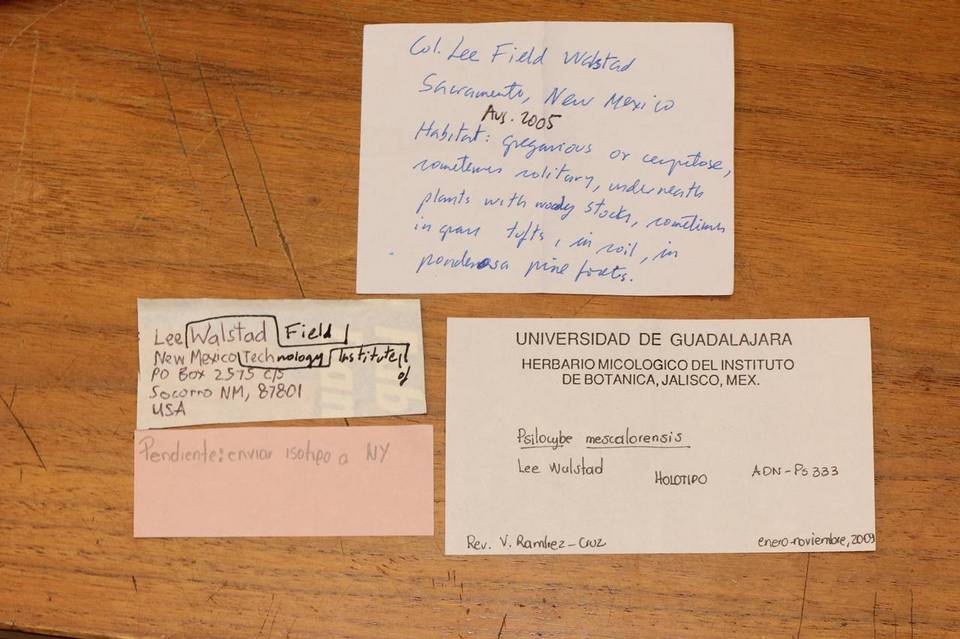 Col. Lee Field Walstad
Sacramento, New Mexico
Aug. 2005
Habitat: gregarious or cespitose,
sometimes solitary, underneath
plants with woody stocks, sometimes
in grass tufts, in soil, in
ponderosa pine forets.
Lee Walstad Field
New Mexico Technology Institute of
PO Box 2575 c/s
Socorro NM, 87801
USA
Pendiente: enviar isotipo a NY
UNIVERSIDAD DE GUADALAJARA
HERBARIO MICOLOGICO DEL INSTITUTO
DE BOTANICA, JALISCO, MEX.
Psilocybe mescalorensis
Lee Walstad
HOLOTIPO
ADN-Ps 333
Rev. V. Ramírez-Cruz
enero-noviembre, 2009